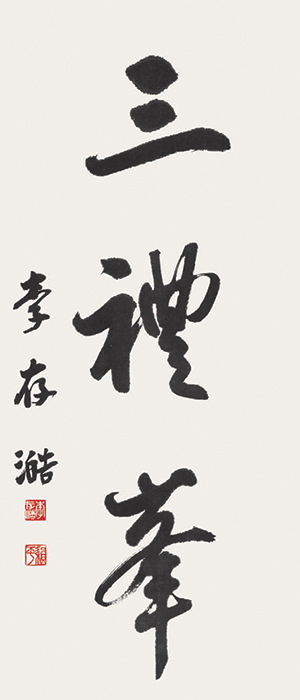 三禮峯
李存澔